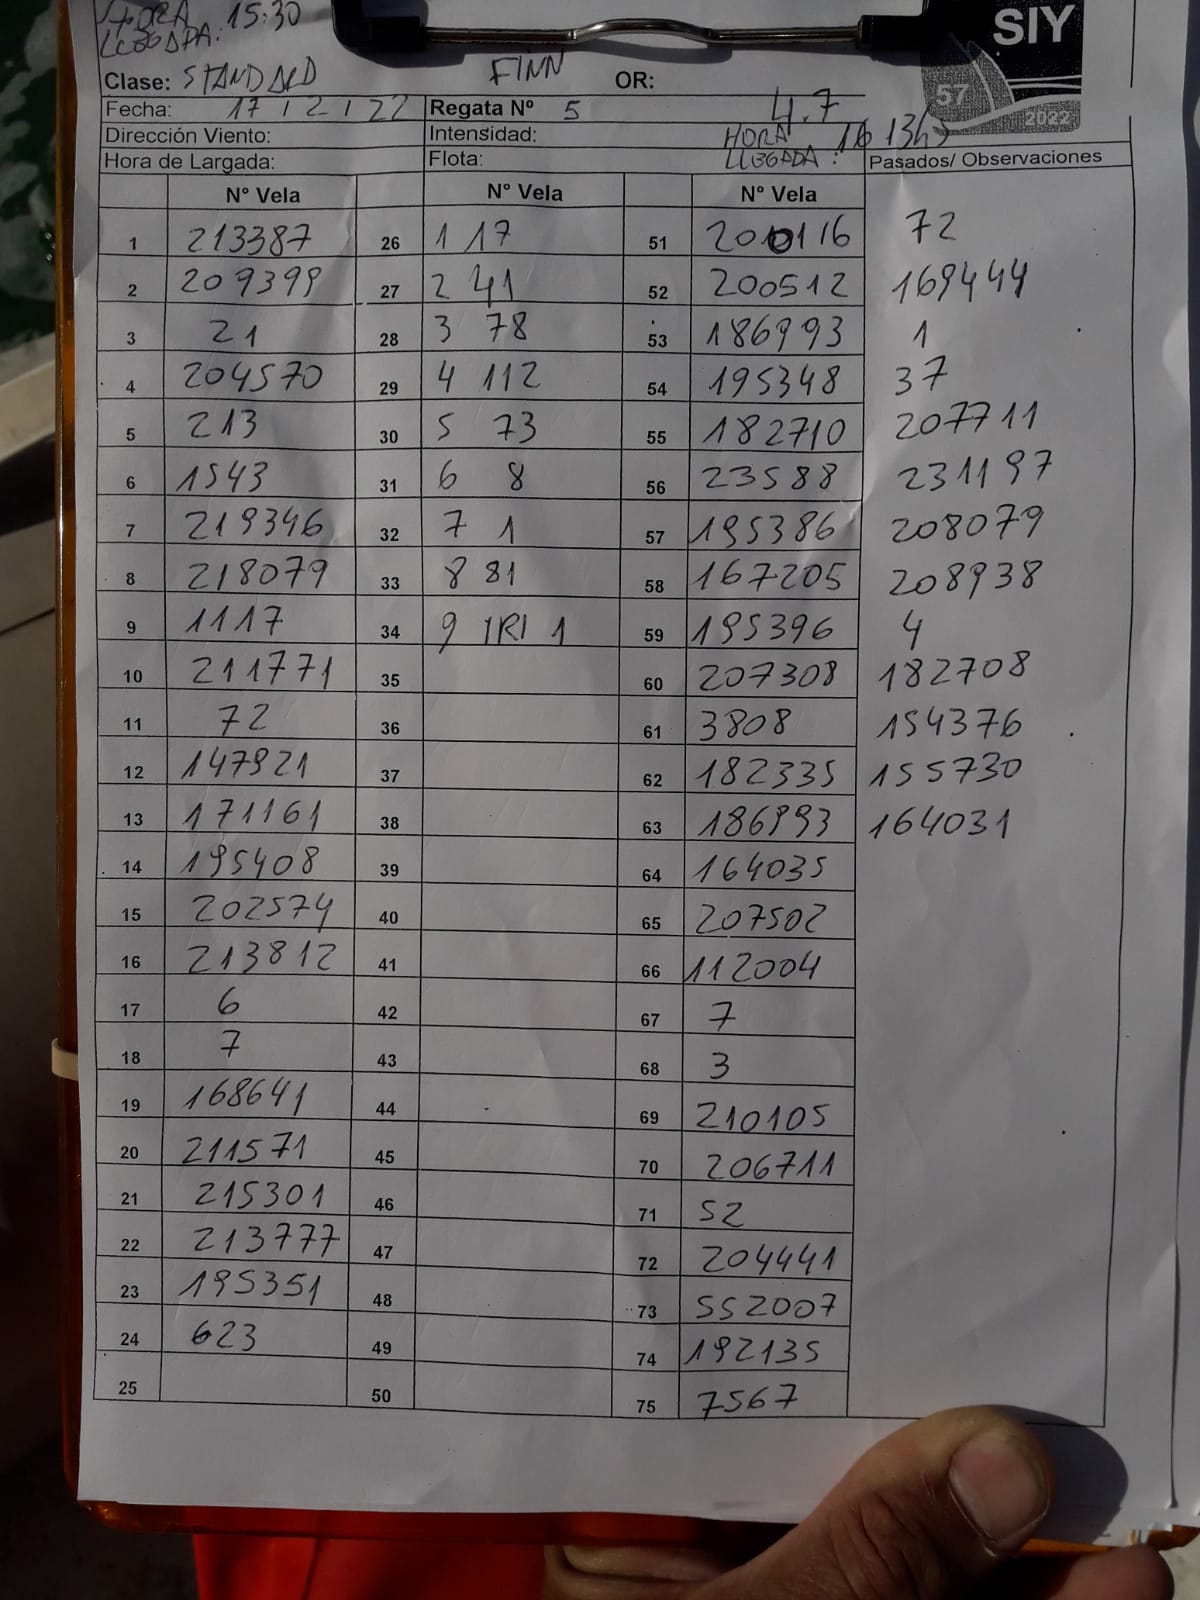 HORA
LLEGADA: 15:30
SIY
57
2022
Clase: STANDARD FINN OR:
Fecha: 17 / 2 / 22 Regata Nº 5 4.7
Dirección Viento: Intensidad: HORA 16 13hs
Hora de Largada: Flota: LLEGADA : Pasados/ Observaciones
N° Vela N° Vela N° Vela
1 213387 26 1 17 51 200116 72
2 209399 27 2 41 52 200512 169444
3 21 28 3 78 53 186993 1
4 204570 29 4 112 54 195348 37
5 213 30 5 73 55 182710 207711
6 1543 31 6 8 56 23588 231197
7 219346 32 7 1 57 195386 208079
8 218079 33 8 81 58 167205 208938
9 1117 34 9 IRI 1 59 195396 4
10 211771 35 60 207308 182708
11 72 36 61 3808 154376
12 147921 37 62 182335 155730
13 171161 38 63 186993 164031
14 195408 39 64 164035
15 202574 40 65 207502
16 213812 41 66 112004
17 6 42 67 7
18 7 43 68 3
19 168641 44 69 210105
20 211571 45 70 206711
21 215301 46 71 52
22 213777 47 72 204441
23 195351 48 73 552007
24 623 49 74 192135
25 50 75 7567